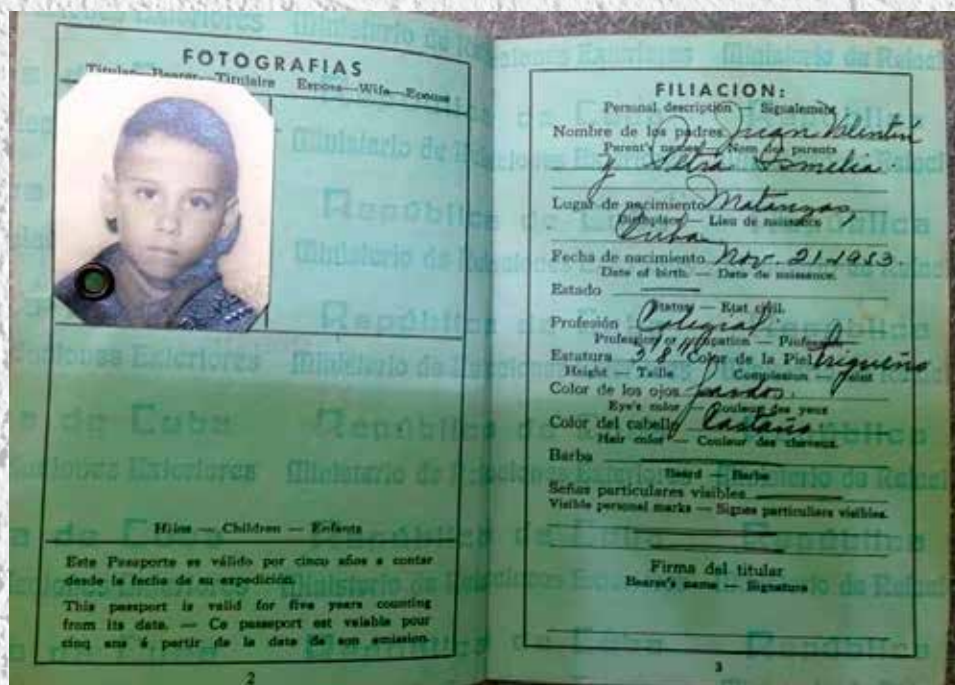 FOTOGRAFIAS
Titular—Bearer—Titulaire Esposa—Wife—Epouse
Hijos — Children — Enfants
Este Pasaporte es válido por cinco años a contar
desde la fecha de su expedición.
This passport is valid for five years counting
from its date. — Ce passeport est valable pour
cinq ans á partir de la date de son emission.
2
FILIACION:
Personal description — Signalement
Nombre de los padres Juan Valentín
Parent's names — Nom des parents
y Petra Ismelia
Lugar de nacimiento Matanzas,
Birthplace — Lieu de naissance
Cuba
Fecha de nacimiento Nov. 21-1953.
Date of birth. — Date de naissance.
Estado
Status — Etat civil.
Profesión Colegial
Profession or occupation — Profession
Estatura 3' 8" Color de la Piel trigueño
Height — Taille Complexion — Teint
Color de los ojos pardos.
Eye's color — Couleur des yeux
Color del cabello Castaño
Hair color — Couleur des cheveux.
Barba
Beard — Barbe
Señas particulares visibles
Visible personal marks — Signes particuliers visibles.
Firma del titular
Bearer's name — Signature
3
República de Cuba
Ministerio de Relaciones Exteriores